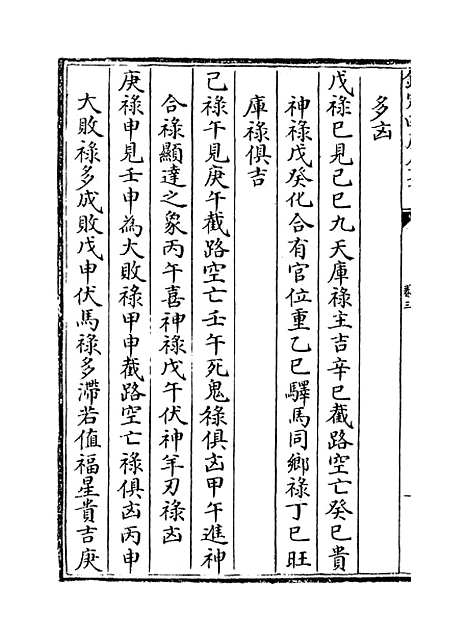 卷三
多㐫
戊禄巳見己巳九天庫禄主吉辛巳截路空亡癸巳貴
神禄戊癸化合有官位重乙巳驛馬同鄉禄丁巳旺
庫禄俱吉
己禄午見庚午截路空亡壬午死鬼禄俱㐫甲午進神
合禄顯達之象丙午喜神禄戊午伏神羊刃禄㐫
庚禄申見壬申為大敗禄甲申截路空亡禄俱㐫丙申
大敗禄多成敗戊申伏馬禄多滯若值福星貴吉庚